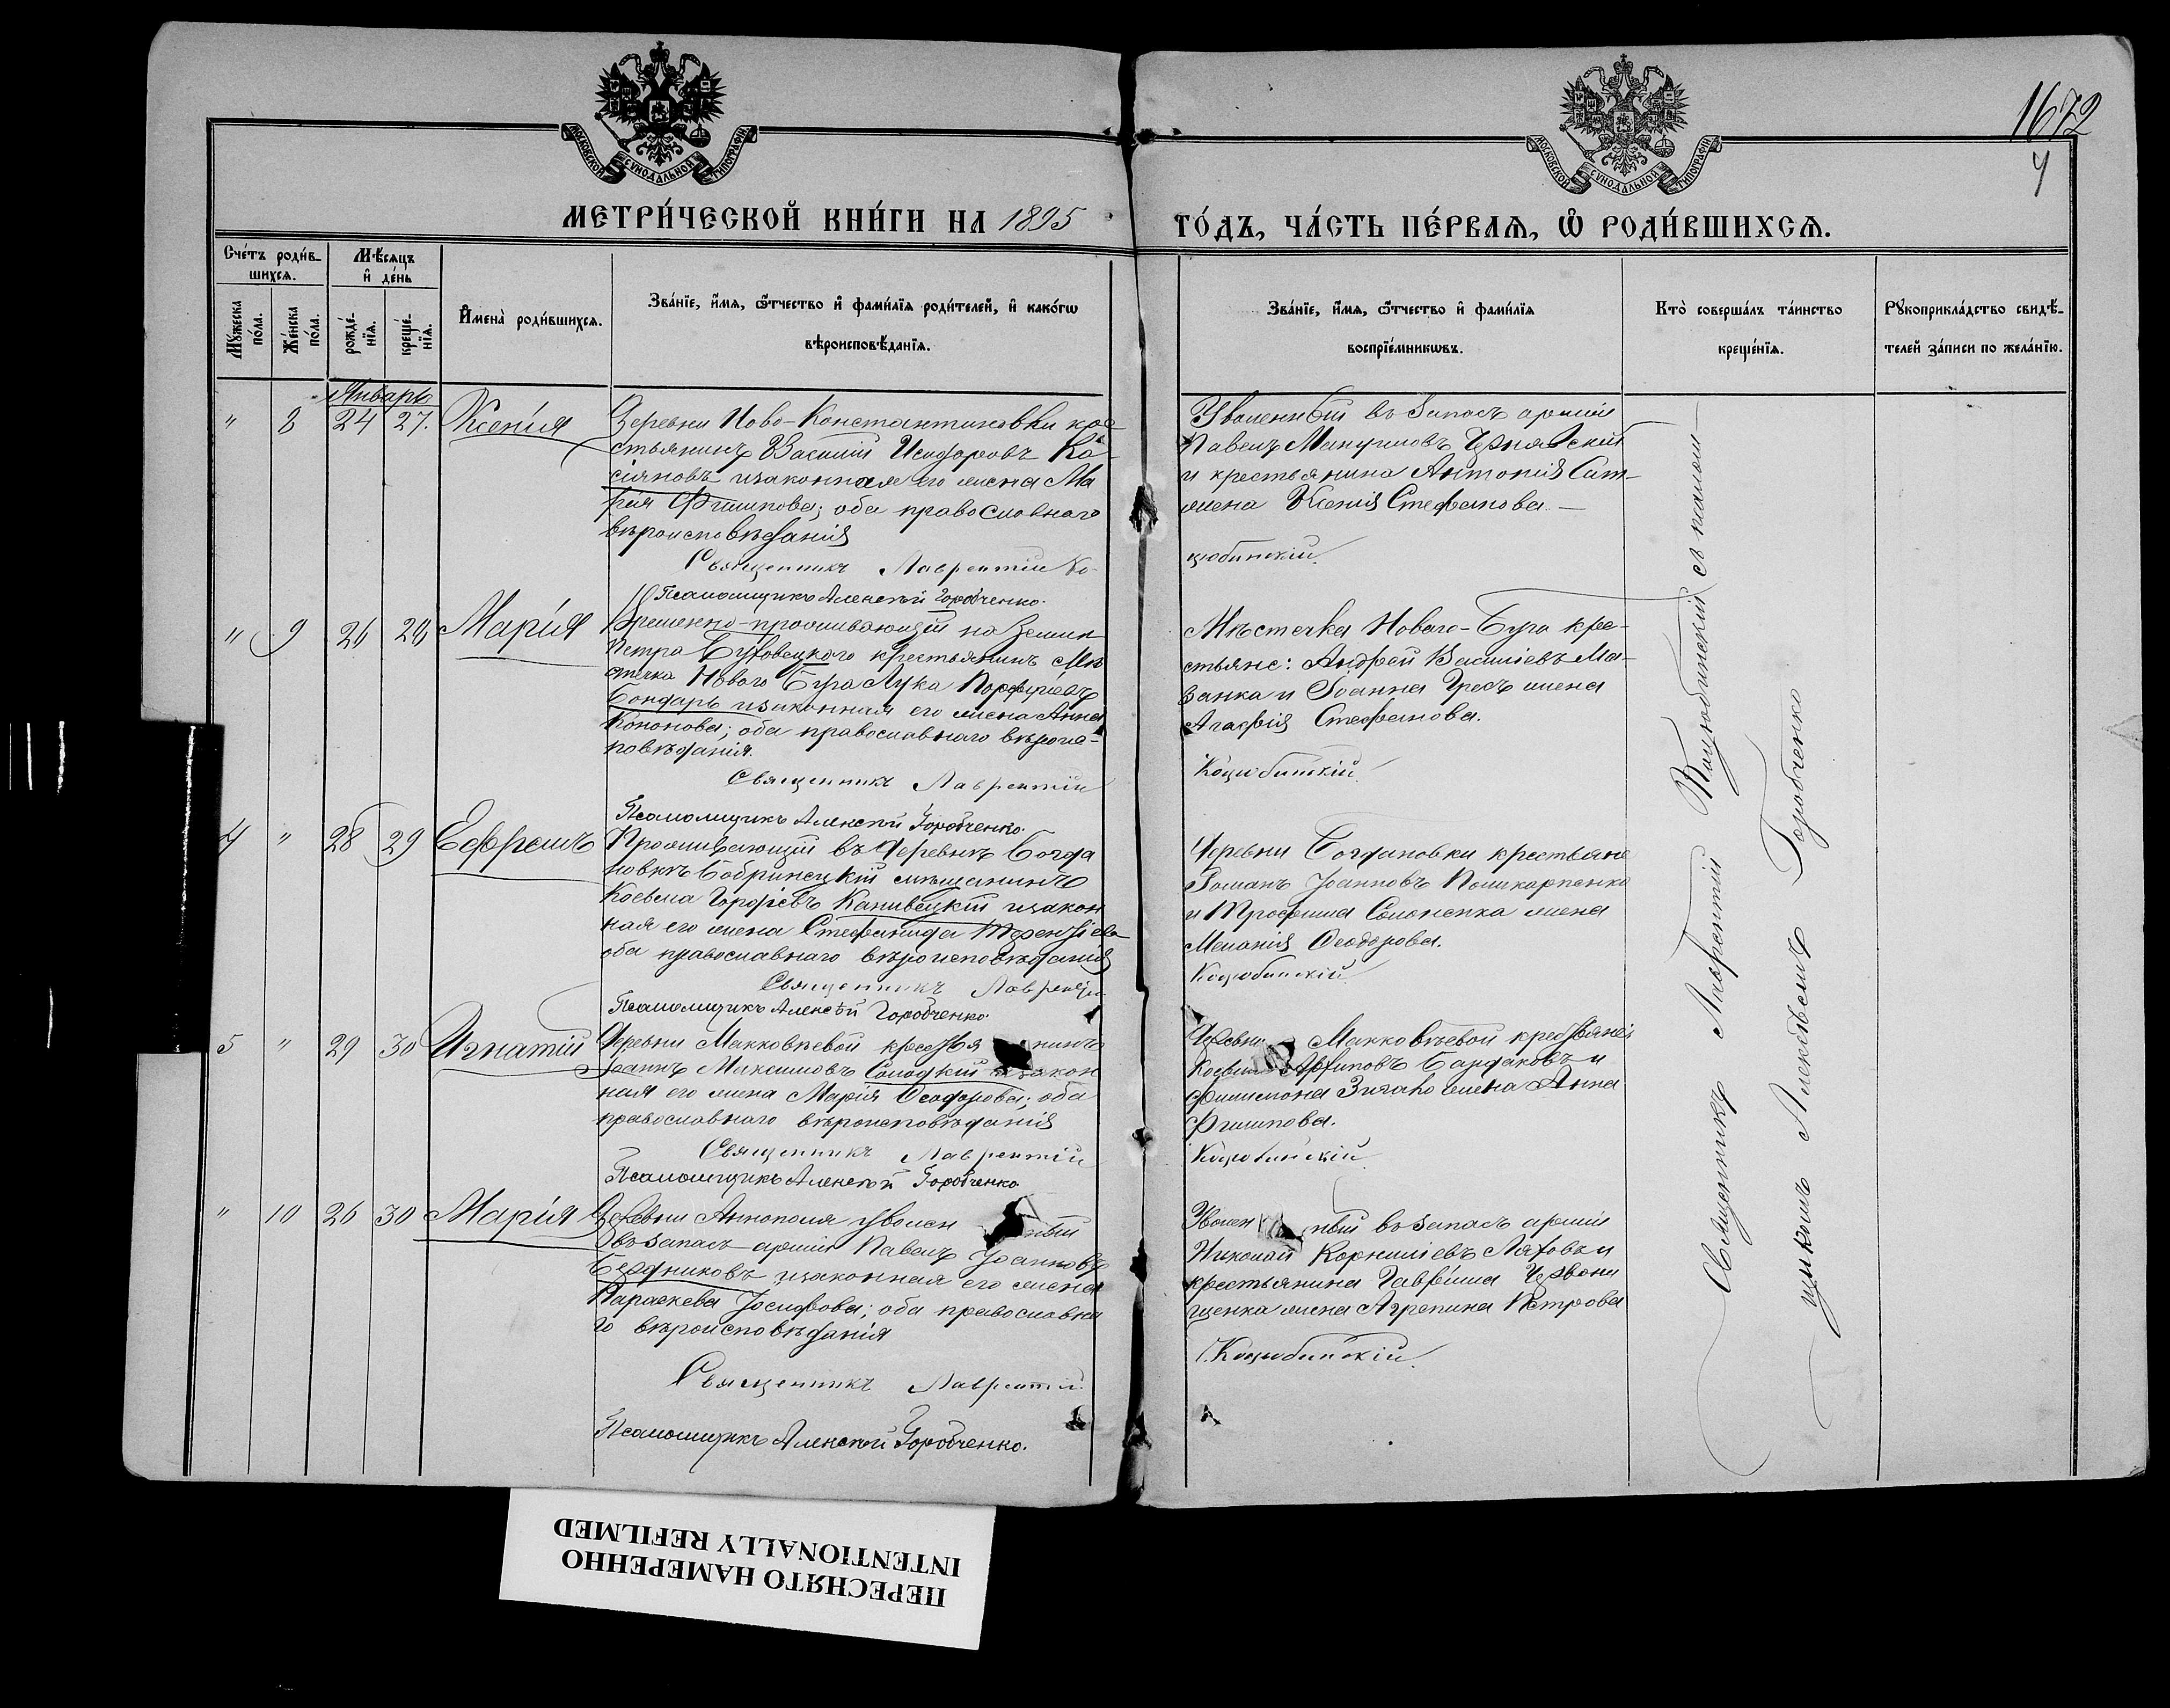 1672
4
МОСКОВСКОЙ СѴНОДАЛЬНОЙ ТИПОГРАФІИ
МОСКОВСКОЙ СѴНОДАЛЬНОЙ ТИПОГРАФІИ
МЕТРИ́ЧЕСКОЙ КНИ́ГИ НА 1895
ГО́ДЪ, ЧА́СТЬ ПЕ́РВАѦ, Ѽ РОДИ́ВШИХСѦ.
Сче́тъ роди́в-
шихсѧ.
Мꙋ́жеска по́ла.
Же́нска по́ла.
Мѣ́сяцъ
и҆ де́нь
рожде́-
нїѧ.
креще́-
нїѧ.
И҆мена̀ роди́вшихсѧ.
Зва́нїе, и҆́мѧ, ѻ҆́тчество и҆ фами́лїѧ роди́телей, и҆ како́гѡ
вѣроисповѣ́данїѧ.
Зва́нїе, и҆́мѧ, ѻ҆́тчество и҆ фами́лїѧ
воспрїе́мникѡвъ.
Кто̀ соверша́лъ та́инство
креще́нїѧ.
Рꙋкоприкла́дство свидѣ́-
телей за́писи по жела́нїю.
Январь
" 8 24 27. Ксенія
Деревни Ново-Константиновки кре
стьянинъ Василій Исидоровъ Ка-
сіяновъ и законная его жена Ма
рія Филипова; оба православнаго
вѣроисповѣданія
Священникъ Лаврентій Ко-
Псаломщикъ Алексѣй Горобченко.
Уволенный въ запасъ арміи
Павелъ Чернявскій
и крестьянина Антонія
жена Ксенія Стефанова.—
цюбинскій.
" 9 26 28 Марія
Временно-проживающій на земли
Петра крестьянинъ Мѣ
стечка Новаго Буга Лука Порфиріевъ
Бондарь и законная его жена Анна
Кононова; оба православнаго вѣроис-
повѣданія.
Священникъ Лаврентій
Псаломщикъ Алексѣй Горобченко.
Мѣстечка Новаго-Буга кре-
стьяне: Андрей Василіевъ Ма-
занка и Іоанна жена
Агафія Стефанова.
Коцюбинскій
4 " 28 29 Ефремъ
Проживающій въ деревнѣ Богда
новкѣ Бобринецкій мѣщанинъ
Косьма Каливецкій и закон
ная его жена Стефанида Терентіева
оба православнаго вѣроисповѣданія
Священникъ Лаврентій
Псаломщикъ Алексѣй Горобченко.
Деревни Богдановки крестьяне
Романъ Іоанновъ Поликарпенко
и Трофима жена
Меланія Ѳеодорова.
Коцюбинскій
5 " 29 30 Игнатій
Деревни Макковѣевой крестья нинъ
Іоаннъ Максимовъ Солодкій и закон
ная его жена Марія Ѳеодорова; оба
православнаго вѣроисповѣданія
Священникъ Лаврентій
Псаломщикъ Алексѣй Горобченко
Деревни Макковѣевой крестьяне
Косьма
Филимона жена Анна
Филипова.
Коцюбинскій
" 10 26 30 Марія
Деревни Аннополя уволен ный
въ запасъ арміи Павелъ Іоанновъ
Бердниковъ и законная его жена
Параскева Іосифова; оба православна
го вѣроисповѣданія
Священникъ Лаврентій
Псаломщикъ Алексѣй Горобченко.
Уволен ный въ запасъ арміи
Николай Корниліевъ и
крестьянина Гавріила Червони
щенка жена Агрепина Петрова
Коцюбинскій.
Священникъ Лаврентій Коцюбинскій съ псалом-
щикомъ Алексѣемъ Горобченко
ПЕРЕСНЯТО НАМЕРЕННО
INTENTIONALLY REFILMED